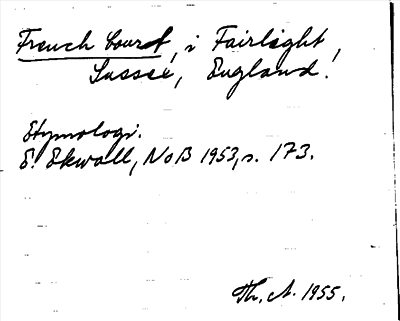 French Court, i Fairlight,
Sussex, England.
Etymologi.
E. Ekwall, NoB 1953, s. 173.
Th. A. 1955.